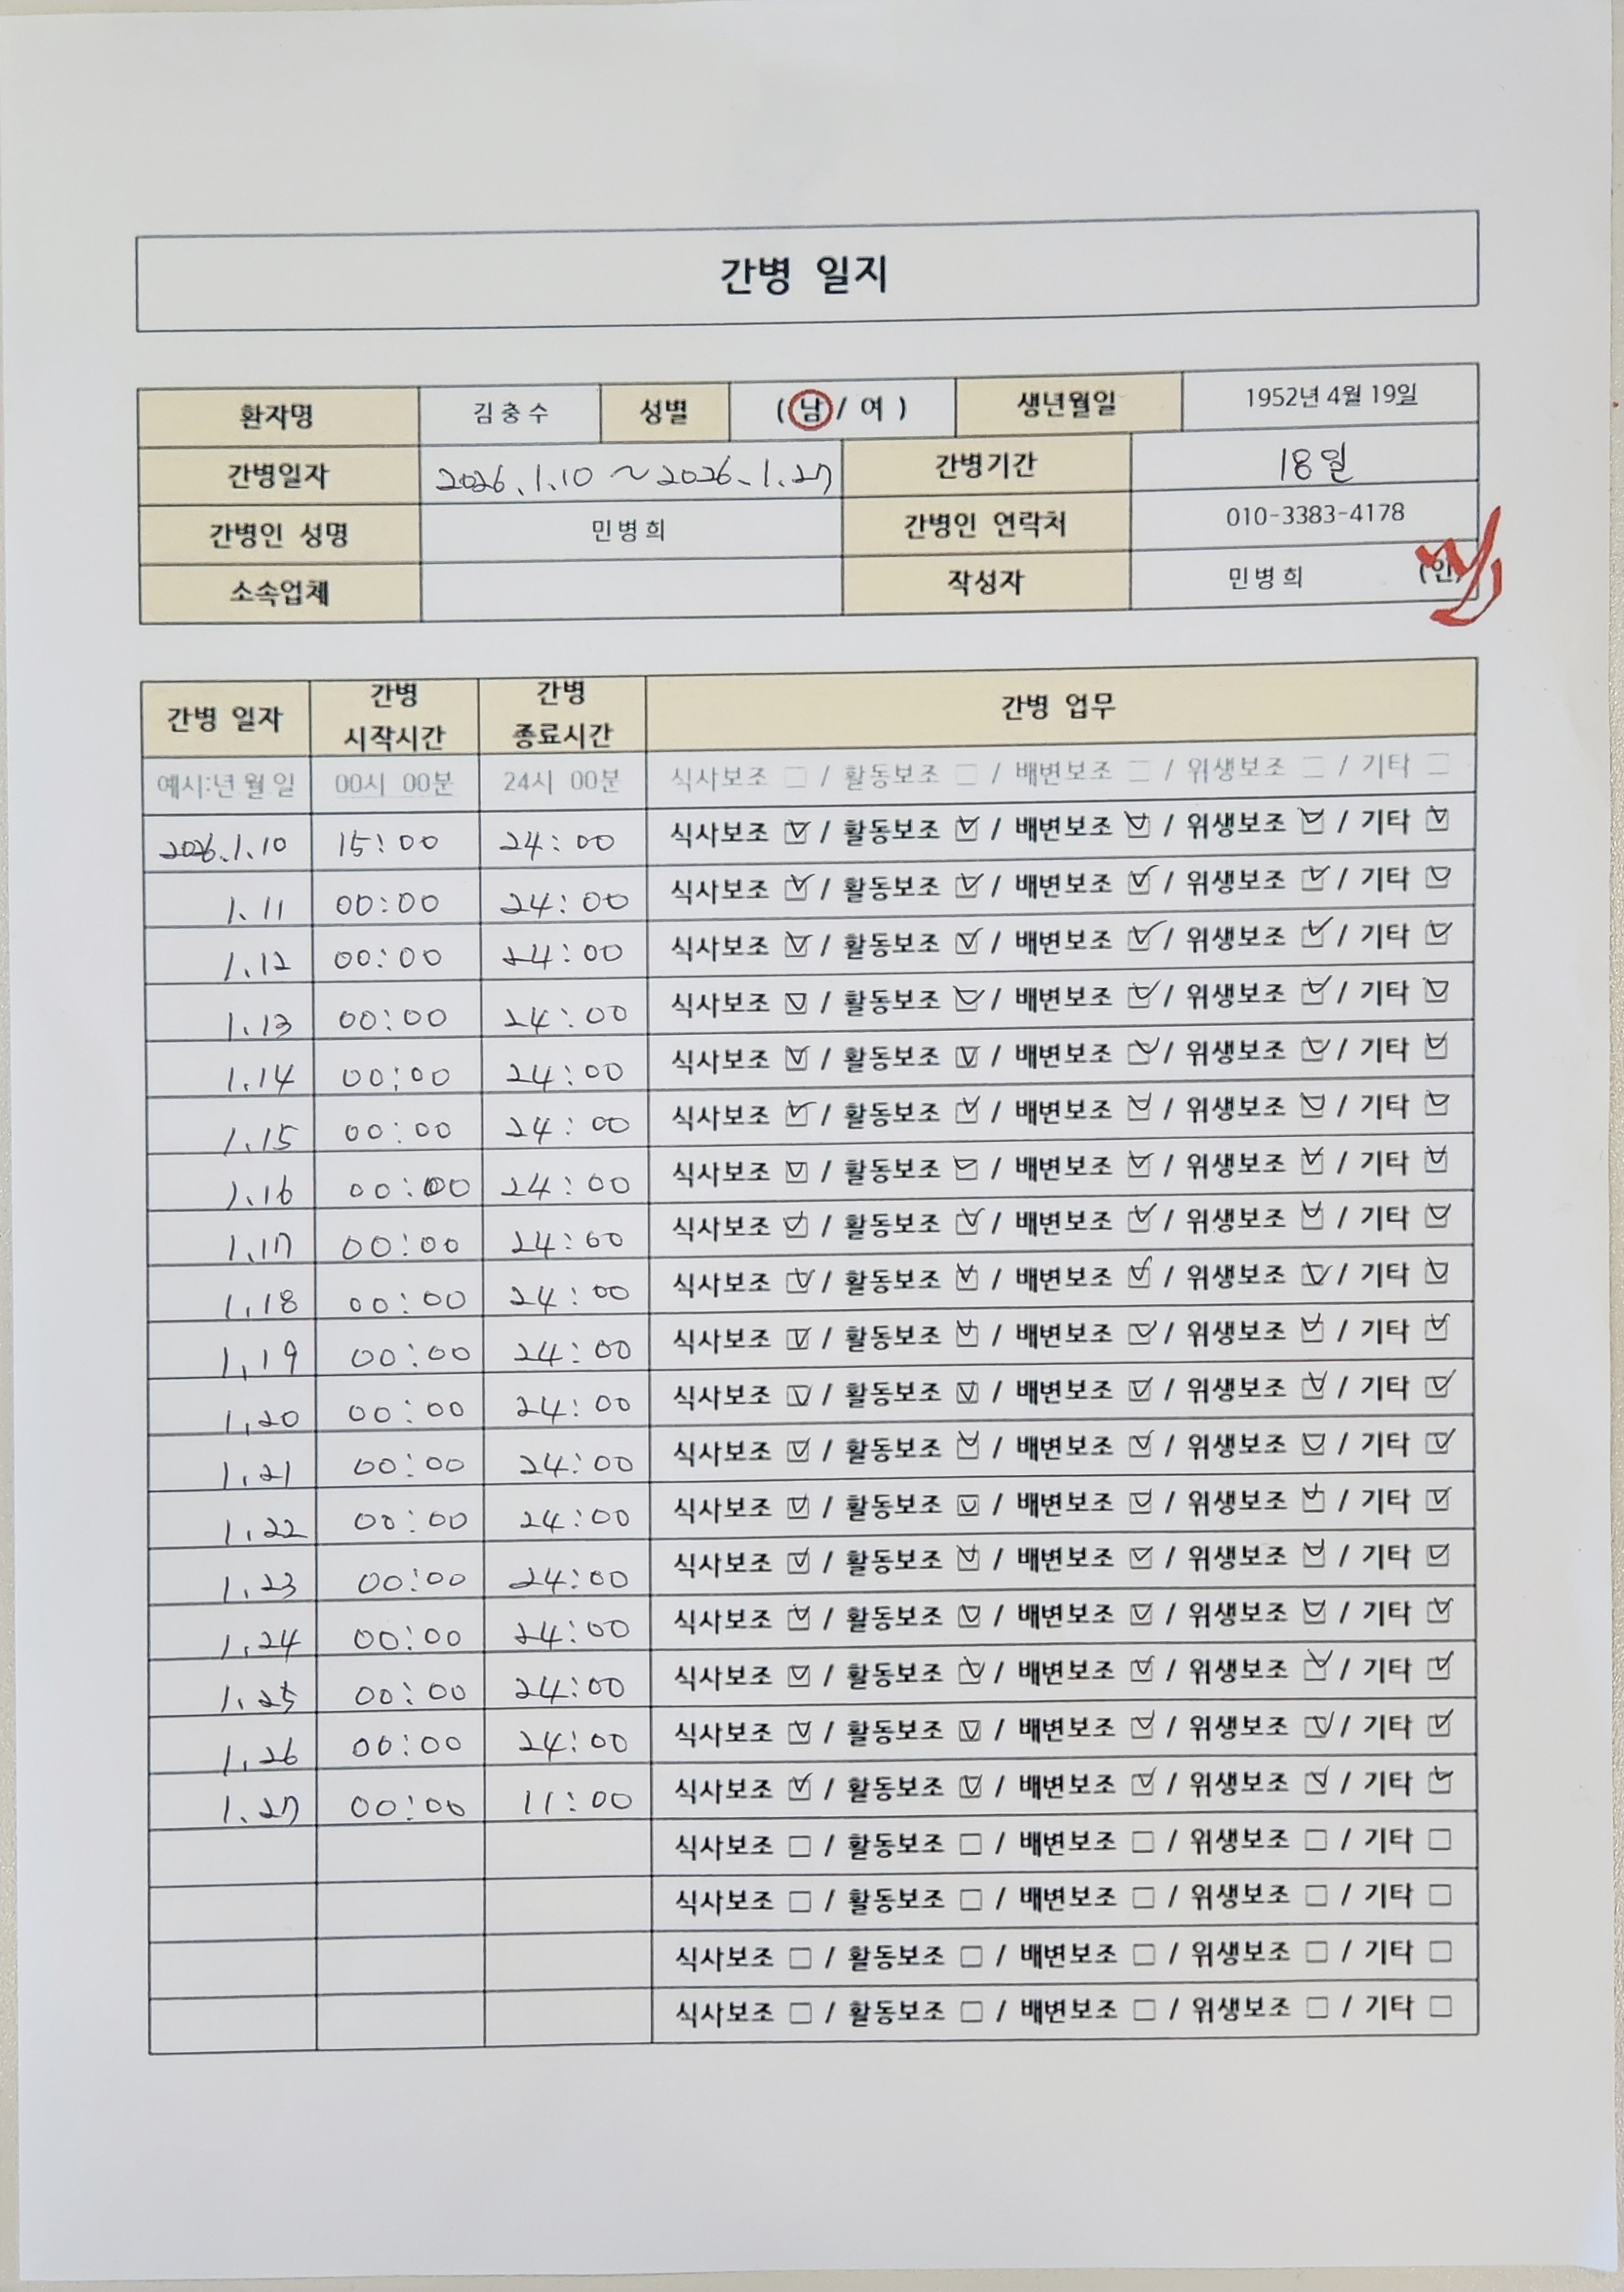 간병 일지
환자명 김충수 성별 (남/ 여 ) 생년월일 1952년 4월 19일
간병일자 2026.1.10 ~ 2026.1.27 간병기간 18일
간병인 성명 민병희 간병인 연락처 010-3383-4178
소속업체 작성자 민병희 (인)
간병 일자 간병 시작시간 간병 종료시간 간병 업무
예시:년 월 일 00시 00분 24시 00분 식사보조 □ / 활동보조 □ / 배변보조 □ / 위생보조 □ / 기타 □
2026.1.10 15:00 24:00 식사보조 ☑ / 활동보조 ☑ / 배변보조 ☑ / 위생보조 ☑ / 기타 ☑
1.11 00:00 24:00 식사보조 ☑ / 활동보조 ☑ / 배변보조 ☑ / 위생보조 ☑ / 기타 ☑
1.12 00:00 24:00 식사보조 ☑ / 활동보조 ☑ / 배변보조 ☑ / 위생보조 ☑ / 기타 ☑
1.13 00:00 24:00 식사보조 ☑ / 활동보조 ☑ / 배변보조 ☑ / 위생보조 ☑ / 기타 ☑
1.14 00:00 24:00 식사보조 ☑ / 활동보조 ☑ / 배변보조 ☑ / 위생보조 ☑ / 기타 ☑
1.15 00:00 24:00 식사보조 ☑ / 활동보조 ☑ / 배변보조 ☑ / 위생보조 ☑ / 기타 ☑
1.16 00:00 24:00 식사보조 ☑ / 활동보조 ☑ / 배변보조 ☑ / 위생보조 ☑ / 기타 ☑
1.17 00:00 24:00 식사보조 ☑ / 활동보조 ☑ / 배변보조 ☑ / 위생보조 ☑ / 기타 ☑
1.18 00:00 24:00 식사보조 ☑ / 활동보조 ☑ / 배변보조 ☑ / 위생보조 ☑ / 기타 ☑
1.19 00:00 24:00 식사보조 ☑ / 활동보조 ☑ / 배변보조 ☑ / 위생보조 ☑ / 기타 ☑
1.20 00:00 24:00 식사보조 ☑ / 활동보조 ☑ / 배변보조 ☑ / 위생보조 ☑ / 기타 ☑
1.21 00:00 24:00 식사보조 ☑ / 활동보조 ☑ / 배변보조 ☑ / 위생보조 ☑ / 기타 ☑
1.22 00:00 24:00 식사보조 ☑ / 활동보조 ☑ / 배변보조 ☑ / 위생보조 ☑ / 기타 ☑
1.23 00:00 24:00 식사보조 ☑ / 활동보조 ☑ / 배변보조 ☑ / 위생보조 ☑ / 기타 ☑
1.24 00:00 24:00 식사보조 ☑ / 활동보조 ☑ / 배변보조 ☑ / 위생보조 ☑ / 기타 ☑
1.25 00:00 24:00 식사보조 ☑ / 활동보조 ☑ / 배변보조 ☑ / 위생보조 ☑ / 기타 ☑
1.26 00:00 24:00 식사보조 ☑ / 활동보조 ☑ / 배변보조 ☑ / 위생보조 ☑ / 기타 ☑
1.27 00:00 11:00 식사보조 ☑ / 활동보조 ☑ / 배변보조 ☑ / 위생보조 ☑ / 기타 ☑
식사보조 □ / 활동보조 □ / 배변보조 □ / 위생보조 □ / 기타 □
식사보조 □ / 활동보조 □ / 배변보조 □ / 위생보조 □ / 기타 □
식사보조 □ / 활동보조 □ / 배변보조 □ / 위생보조 □ / 기타 □
식사보조 □ / 활동보조 □ / 배변보조 □ / 위생보조 □ / 기타 □